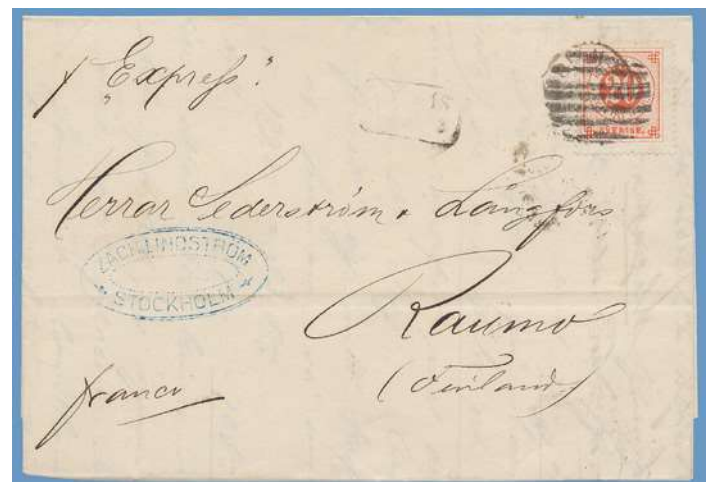 p "Express".
20
SVERIGE.
Herrar Sederström & Långfors
ZACH. LINDSTRÖM
STOCKHOLM
Raumo
(Finland)
franco